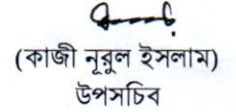 (কাজী নূরুল ইসলাম)
উপসচিব